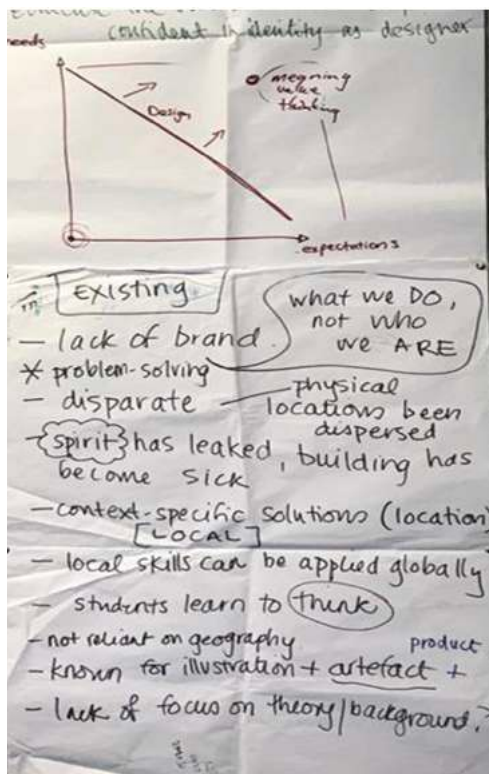 confident in identity as designer
needs
meaning
value
thinking
Design
expectations
EXISTING
what we DO,
not who
we ARE
- lack of brand.
* problem-solving
- disparate - physical
locations been
dispersed
- spirit has leaked, building has
become sick
- context-specific solutions (location)
[LOCAL]
- local skills can be applied globally
- students learn to think
- not reliant on geography
product
- known for illustration + artefact +
- lack of focus on theory/background.